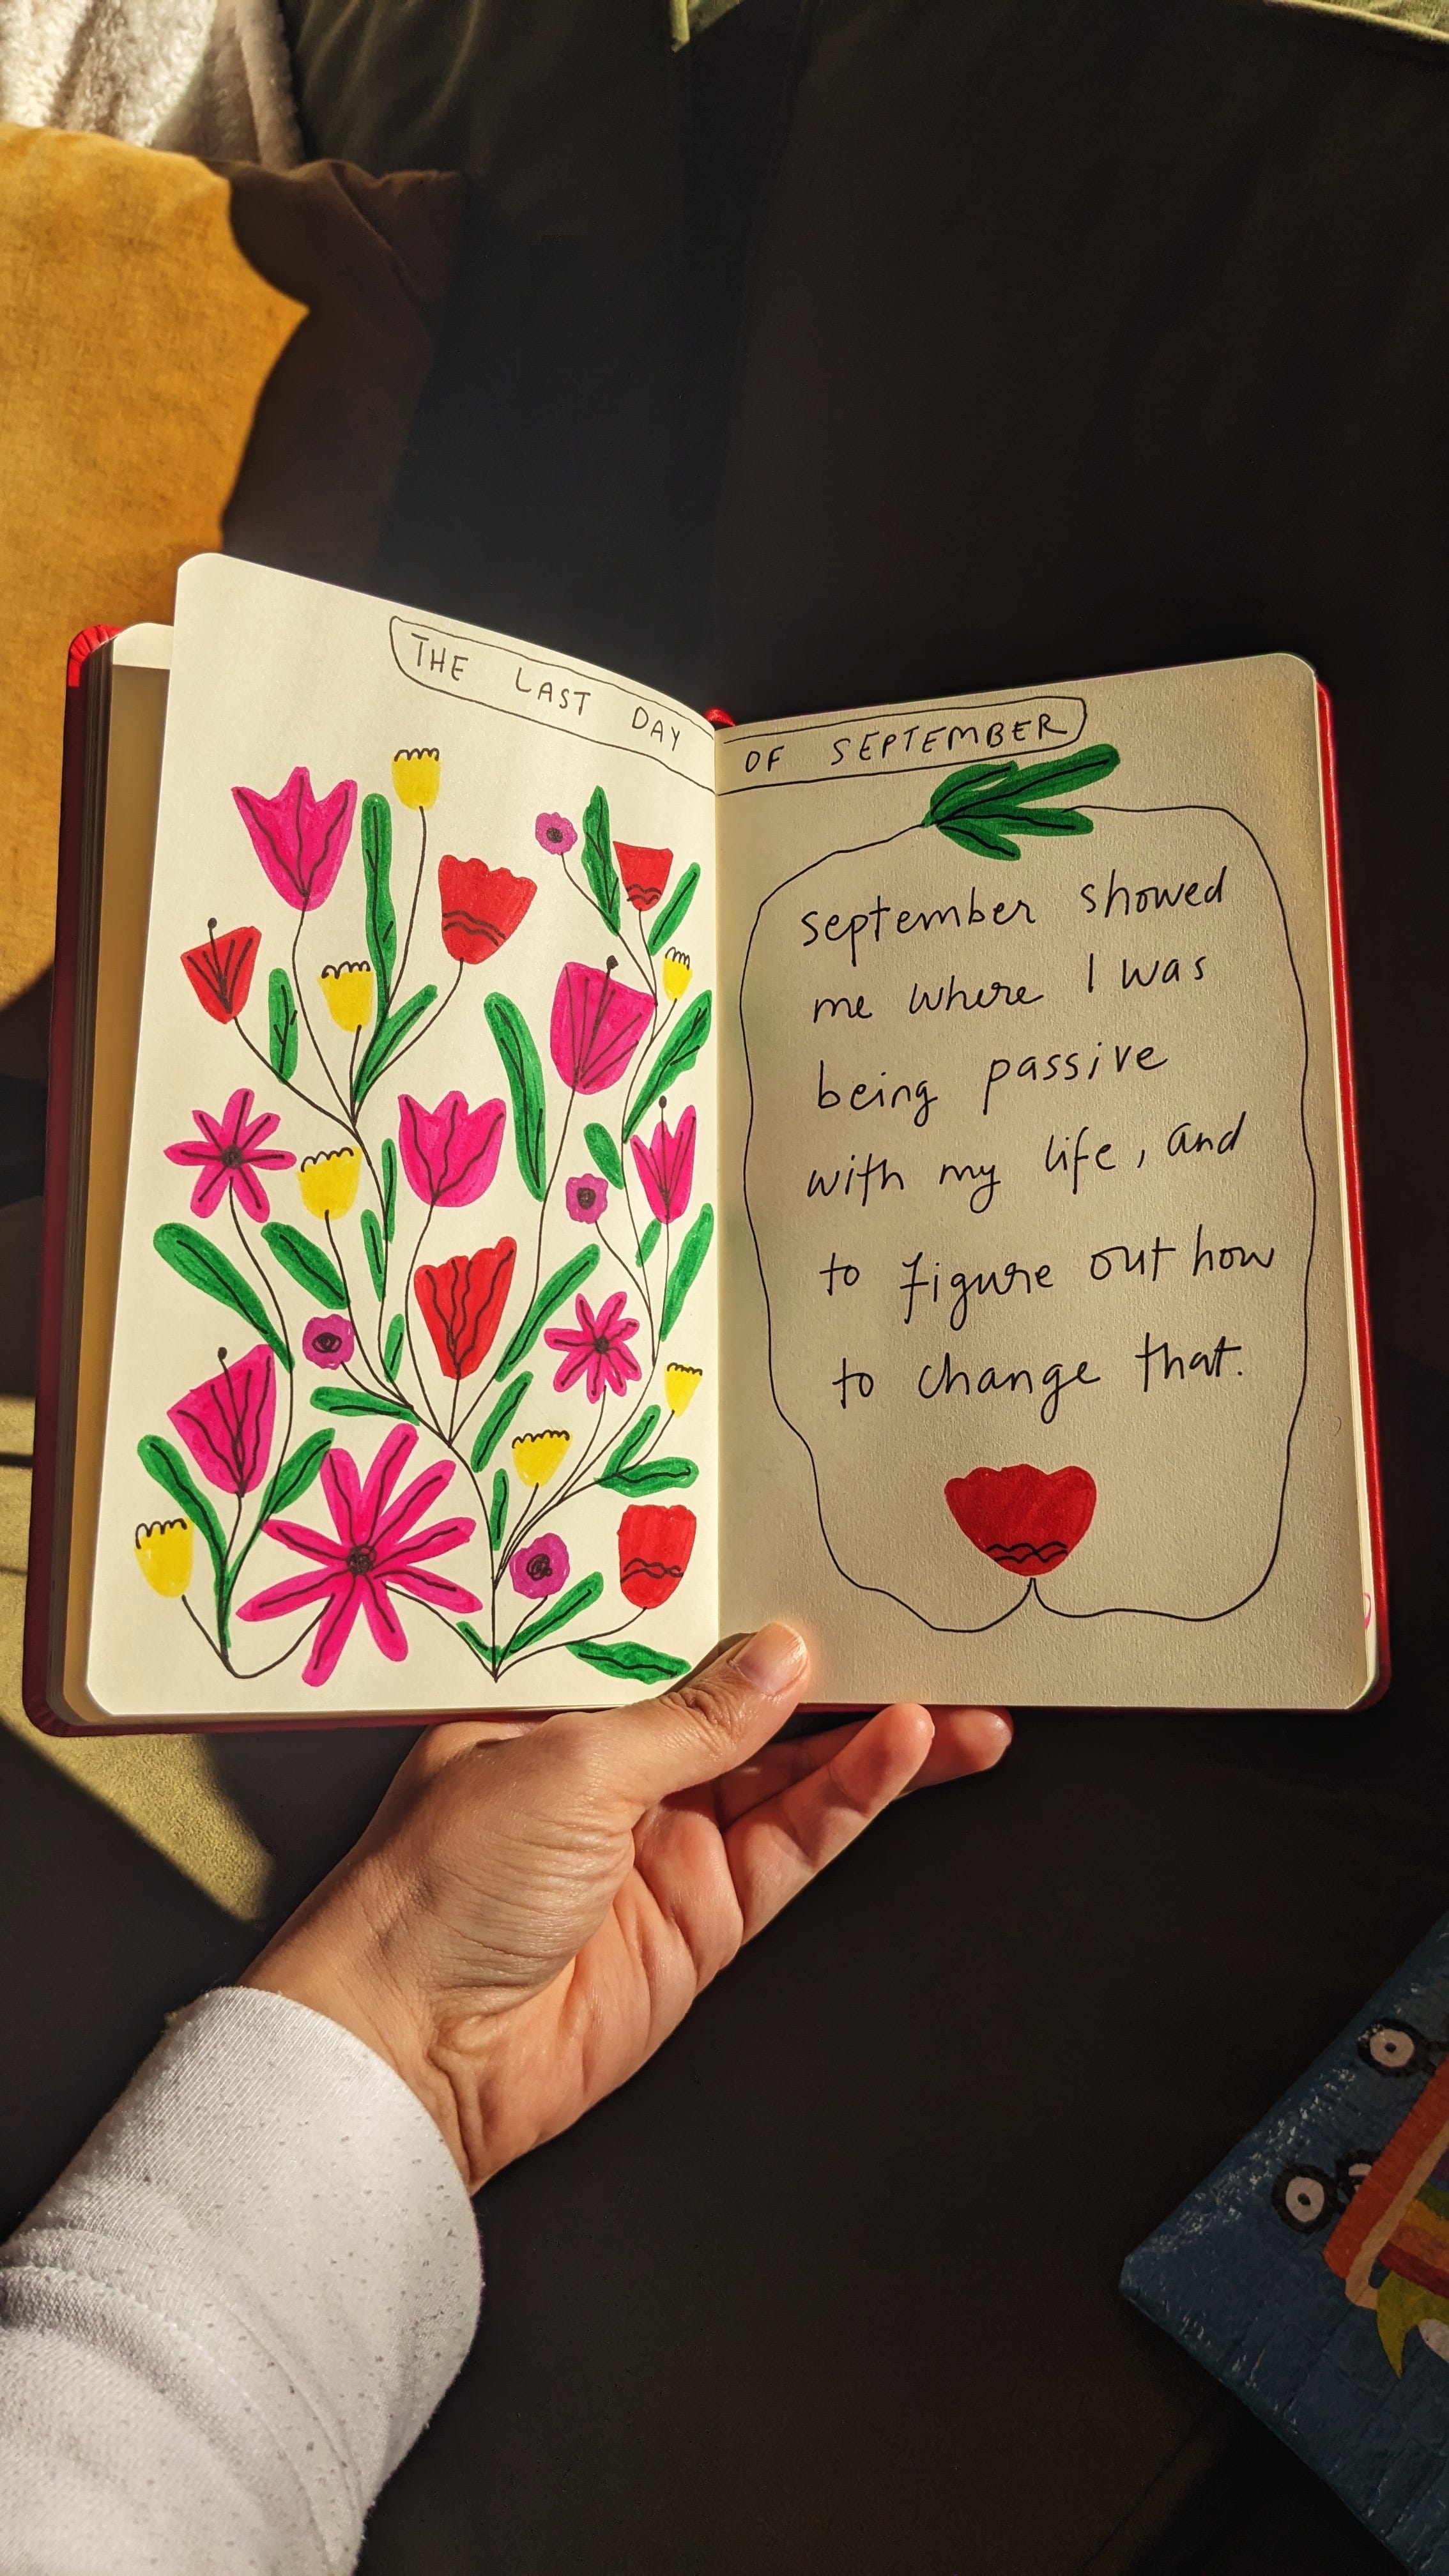 THE LAST DAY OF SEPTEMBER
september showed
me where I was
being passive
with my life, and
to figure out how
to change that.